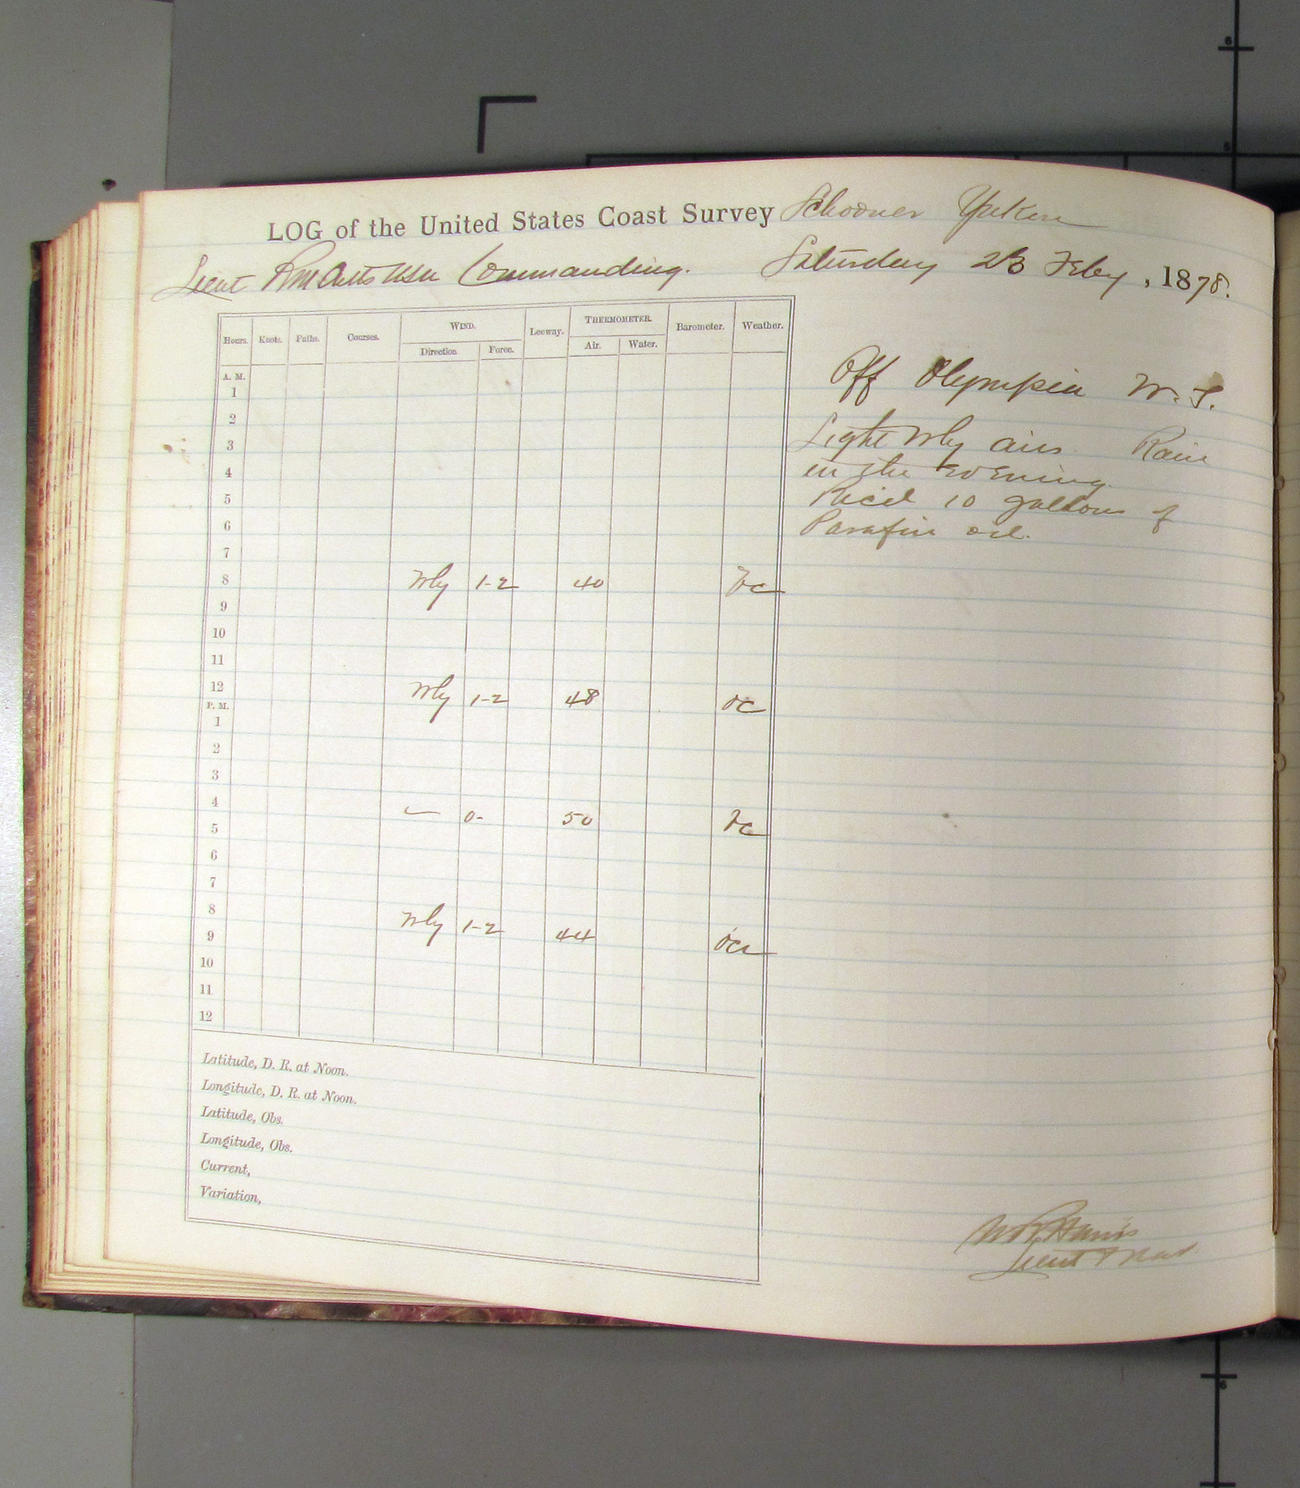 LOG of the United States Coast Survey Schooner Yukon
Lieut Commanding. Saturday 23 Feby, 1878.
Hours. Knots. Faths. Courses. WIND. Leeway. THERMOMETER. Barometer. Weather.
Direction. Force. Air. Water.
A. M.
1
2
3
4
5
6
7
8 Wly 1-2 40 bc
9
10
11
12 Wly 1-2 48 oc
P. M.
1
2
3
4 0- 50 bc
5
6
7
8 Wly 1-2 44
9
10
11
12
Latitude, D. R. at Noon.
Longitude, D. R. at Noon.
Latitude, Obs.
Longitude, Obs.
Current,
Variation,
Off Olympia W. T.
Light Wly airs Rain
in the evening.
Rec'd 10 gallons of
Parafin oil.
Harris
Lieut